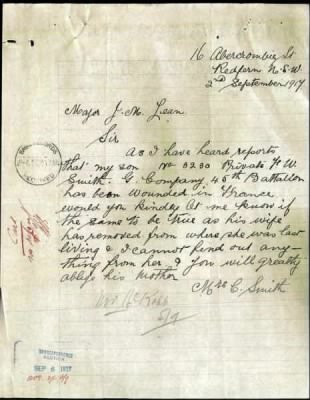 16 Abercrombie St
Redfern N.S.W
2nd September 1917
Major J. M. Lean.
Sir
As I have heard reports
that my son No 3230 Private F W
Smith. G. Company, 45th Battalion
has been Wounded in France
would you kindley let me know if
the same to be true as his wife
has removed from where she was
living & I cannot find out any-
thing from her & You will greatly
oblege his Mother
Mrs C. Smith
5/9
SEP 6 1917